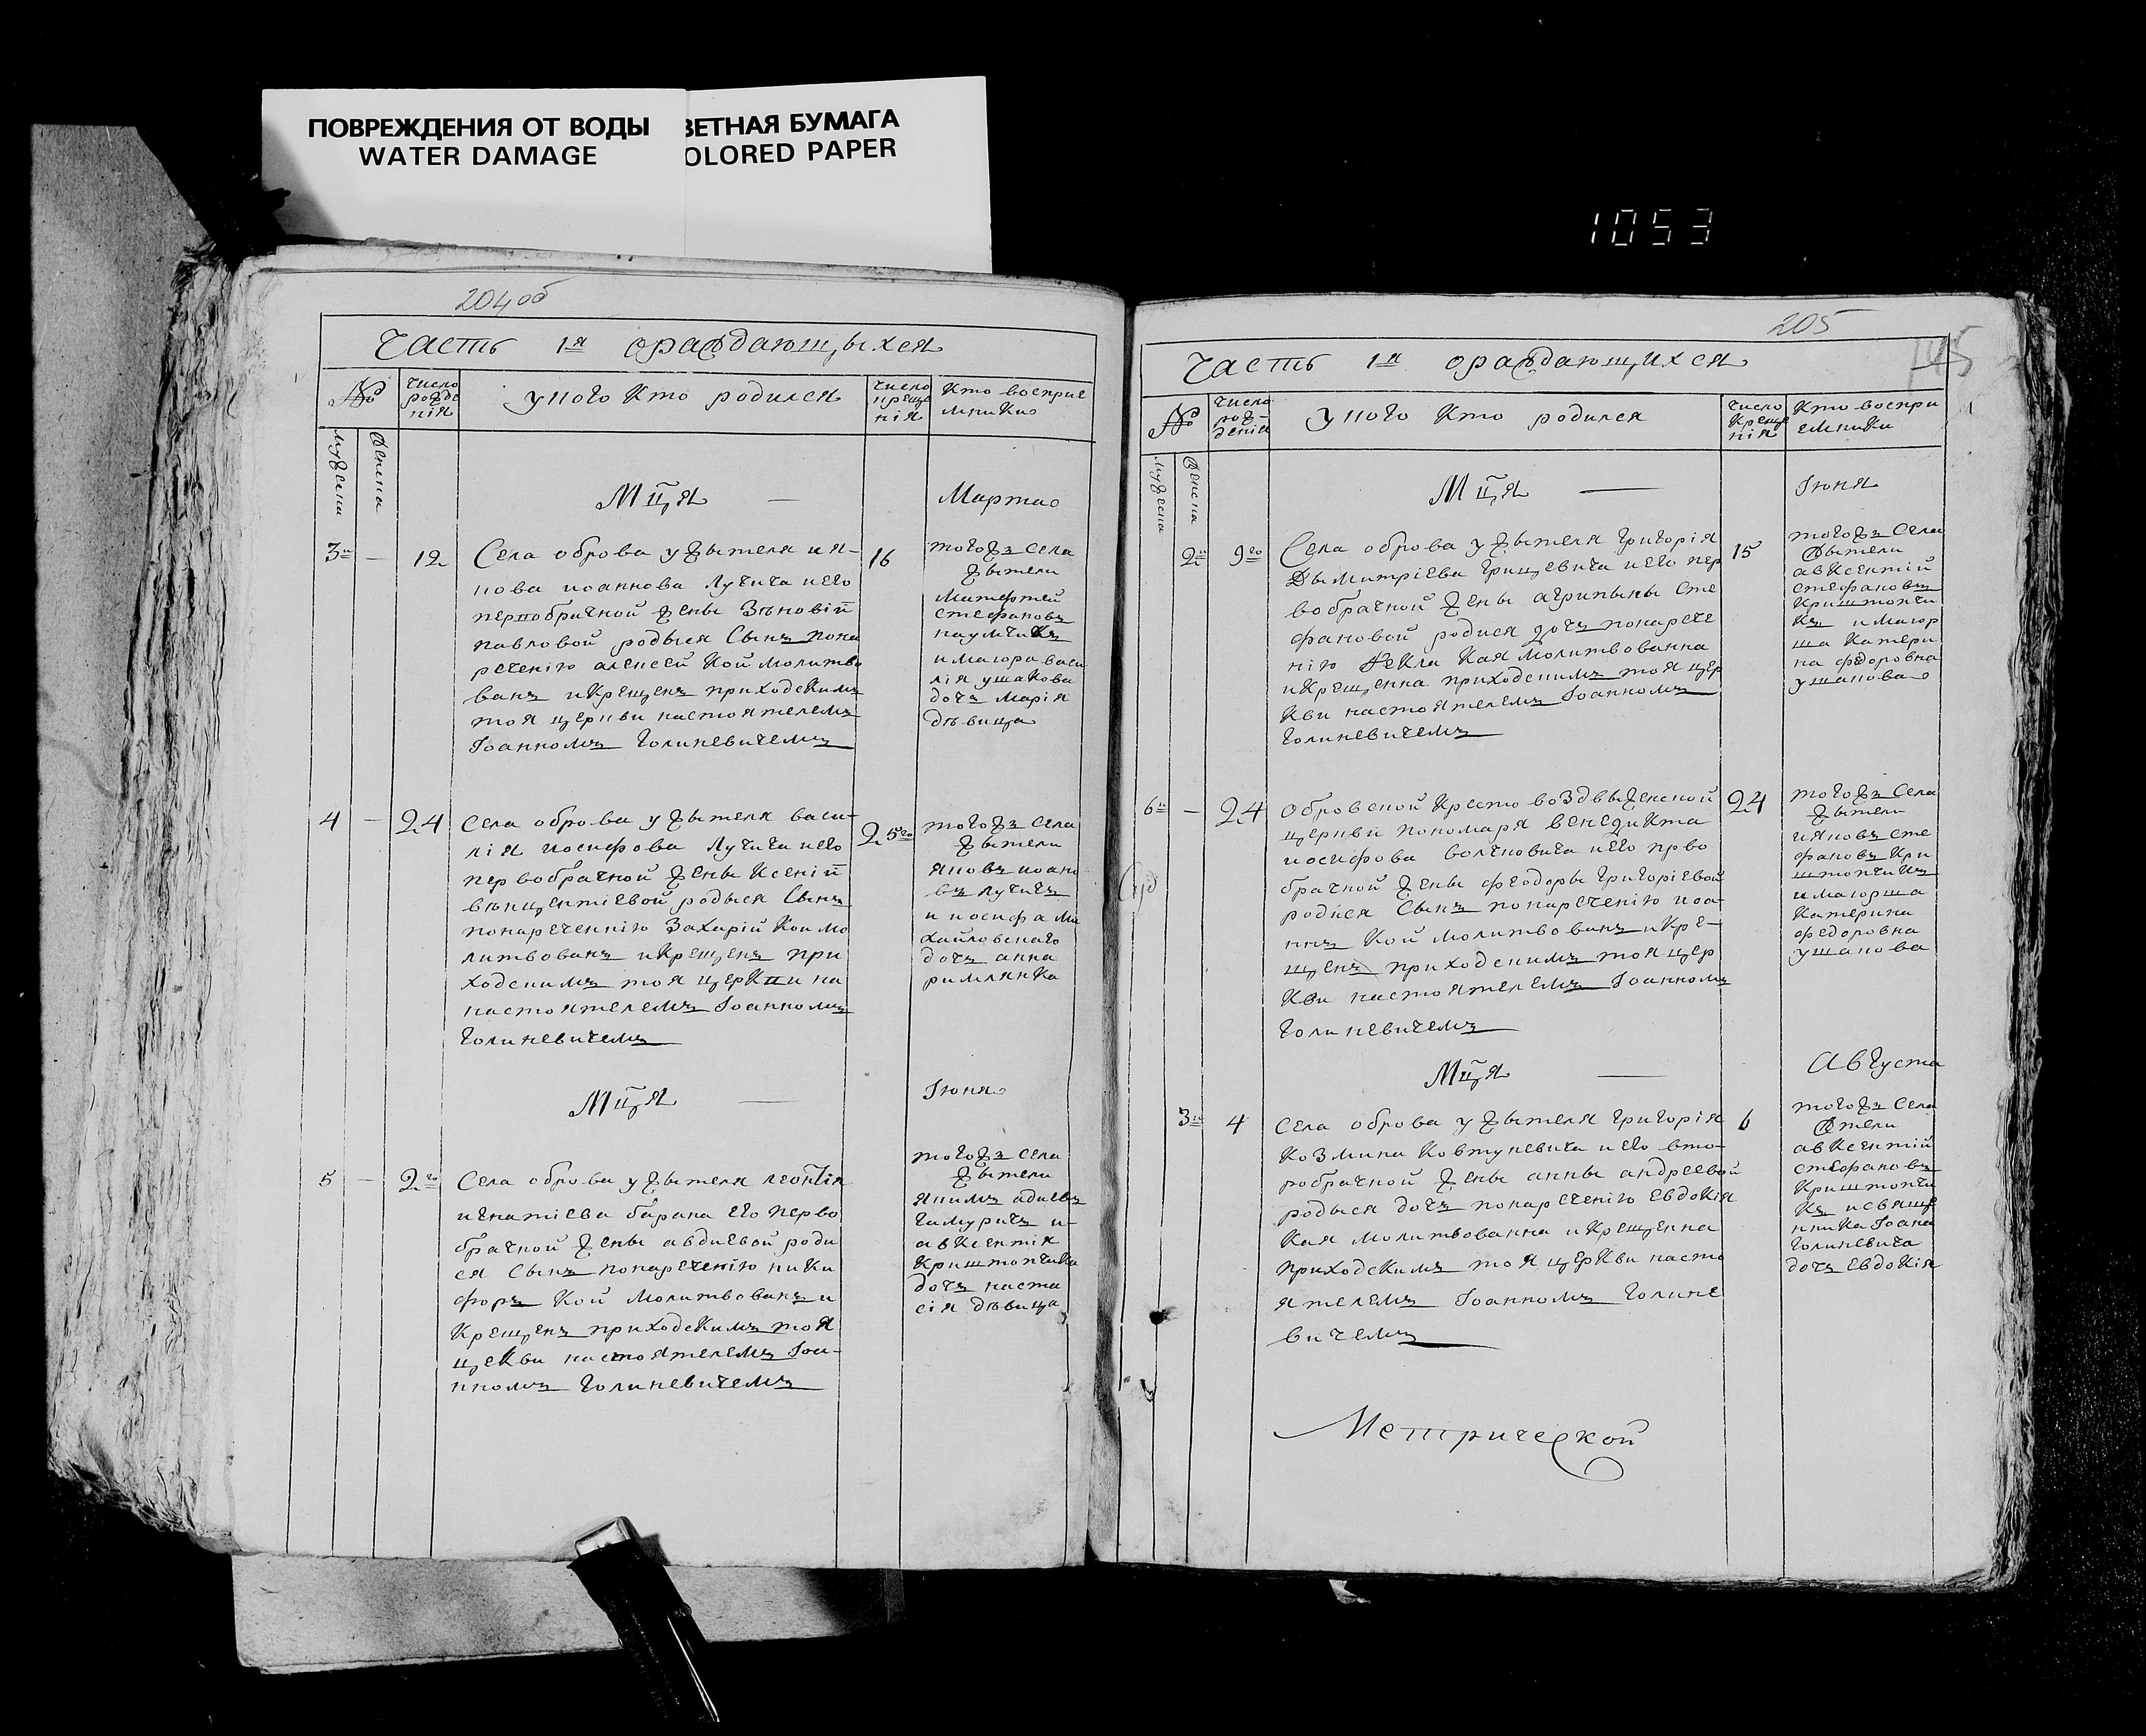 ПОВРЕЖДЕНИЯ ОТ ВОДЫ
WATER DAMAGE
ВЕТНАЯ БУМАГА
OLORED PAPER
1053
204об
Часть 1я ораждающыхся
№
число рожденія
у кого кто родился
число крещенія
кто восприемники
мужеска
женска
Мця — Марта
3й — 12
Села оброва у жытеля ия-
нова иоаннова лучича и его
первобрачной жены Зѣновій
павловой родыся Сынъ пона
речению алексей кой молитво
ванъ и крещенъ приходскимъ
тоя церкви настоятелемъ
Іоанномъ Голиневичемъ
16
тогожъ села
жытели
Матфтей
стефановъ
наумчикъ
и маіора васи
лія ушакова
дочъ марія
дѣвица
4 — 24
Села оброва у жытеля васи-
лія иосифова лучича и его
первобрачной жены Ксеніи
вѣнцентіевой родыся Сынъ
понаречению Захарій кои мо
литвованъ и крещенъ при
ходскимъ тоя церкви на
настоятелемъ Іоанномъ
Голиневичемъ
25го
тогожъ села
жытели
яновъ иоано
въ лучичъ
и иосифа Ми
хайловскаго
дочъ анна
римлянка
Мця — Іюня
5 — 2го
Села оброва у жытеля леонтія
игнатіева барана его перво
брачной жены авдиевой роди
ся Сынъ понаречению ники
форъ кой молитвованъ и
крещенъ приходскимъ тоя
цекви настоятелемъ Іоа-
нномъ Голиневичемъ
тогожъ села
жытели
якимъ адиевъ
гамуричъ и
авксентія
криштопчика
дочъ наста
сія дѣвица
205
145
Часть 1я ораждающихся
№
число рожденія
у кого кто родился
число крещенія
кто восприемники
мужеска
женска
Мця — Іюня
2й 9го
Села оброва у жытеля григорія
дымитріева грицевича и его пер
вобрачной жены агрипыны сте
фановой родися дочъ понарече
нію Фекла кая молитвованна
и крещенна приходскимъ тоя цер
кви настоятелемъ Іоанномъ
Голиневичемъ
15
тогожъ села
жытели
авксентій
стефановъ
криштопчи
къ и маіор
ша катери
на федоровна
ушакова
6й — 24
Обровской Крестовоздвыженской
церкви пономаря венедикта
иосифова волчковича и его прво
брачной жены феодоры григоріевой
родися Сынъ понаречению иоа-
ннъ кой молитвованъ и кре-
щенъ приходскимъ тоя цер
кви настоятелемъ Іоанномъ
Голиневичемъ
24
тогожъ села
жытели
ияновъ сте
фановъ кри
штопчикъ
и маіорша
катерина
федоровна
ушакова
Мця — Августа
3й 4
Села оброва у жытеля григорія
козмина ковтуневича и его вто-
робрачной жены анны андреевой
родыся дочъ понаречению Евдокія
кая молитвованна и крещенна
приходскимъ тоя церкви насто
ятелемъ Іоанномъ Голине
вичемъ
6
тогожъ села
жтели
авксентій
стефановъ
криштопчи
къ и свяще
нника Іоана
Голиневича
дочъ Евдокія
Метрической